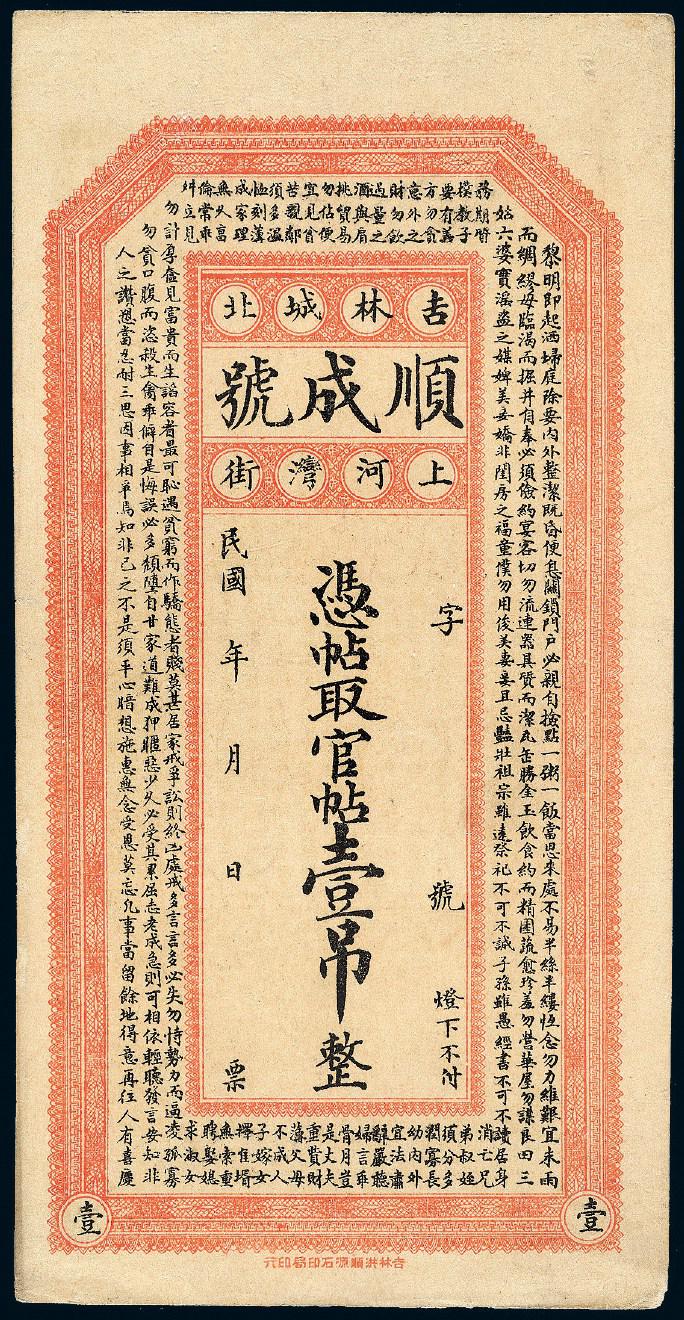 吉林城北
順成號
上河灣街
字
號
燈下不付
憑帖取官帖壹吊整
民國 年 月 日 票
黎明即起洒埽庭除要內外整潔既昏便息關鎖門户必親自撿點一粥一飯當思來處不易半絲半縷恆念勿力維艱宜未雨
而綢繆毋臨渴而掘井自奉必須儉約宴客切勿流連器具質而潔瓦缶勝金玉飲食約而精園蔬愈珍羞勿營華屋勿謀良田三
姑六婆實淫盜之媒婢美妾嬌非閨房之福童僕勿用俊美妻妾且忌豔壯祖宗雖遠祭祀不可不誠子孫雖愚經書不可不讀居身
務期質
樸教子
要有義
方勿貪
意外之
財勿飲
過量之
酒與肩
挑貿易
勿佔便
宜見貧
苦親鄰
須多溫
恤刻薄
成家理
無久富
倫常乖
舛立見
消亡兄
弟叔姪
須分多
潤寡長
幼內外
宜法肅
辭嚴聽
婦言乖
骨肉豈
是丈夫
重貲財
薄父母
不成人
子嫁女
擇佳壻
無索重
聘娶媳
求淑女
勿計厚奩見富貴而生諂容者最可恥遇貧窮而作驕態者賤莫甚居家戒爭訟則終凶處戒多言言多必失勿恃勢力而逼凌孤寡
勿貪口腹而恣殺生禽乖僻自是悔誤必多頹墮自甘家道難成狎暱惡少久必受其累屈志老成急則可相依輕聽發言安知非
人之讚愬當忍耐三思因事相爭焉知非己之不是須平心暗想施惠無念受恩莫忘凡事當留餘地得意再往人有喜慶
壹
壹
吉林洪順源石印局印行